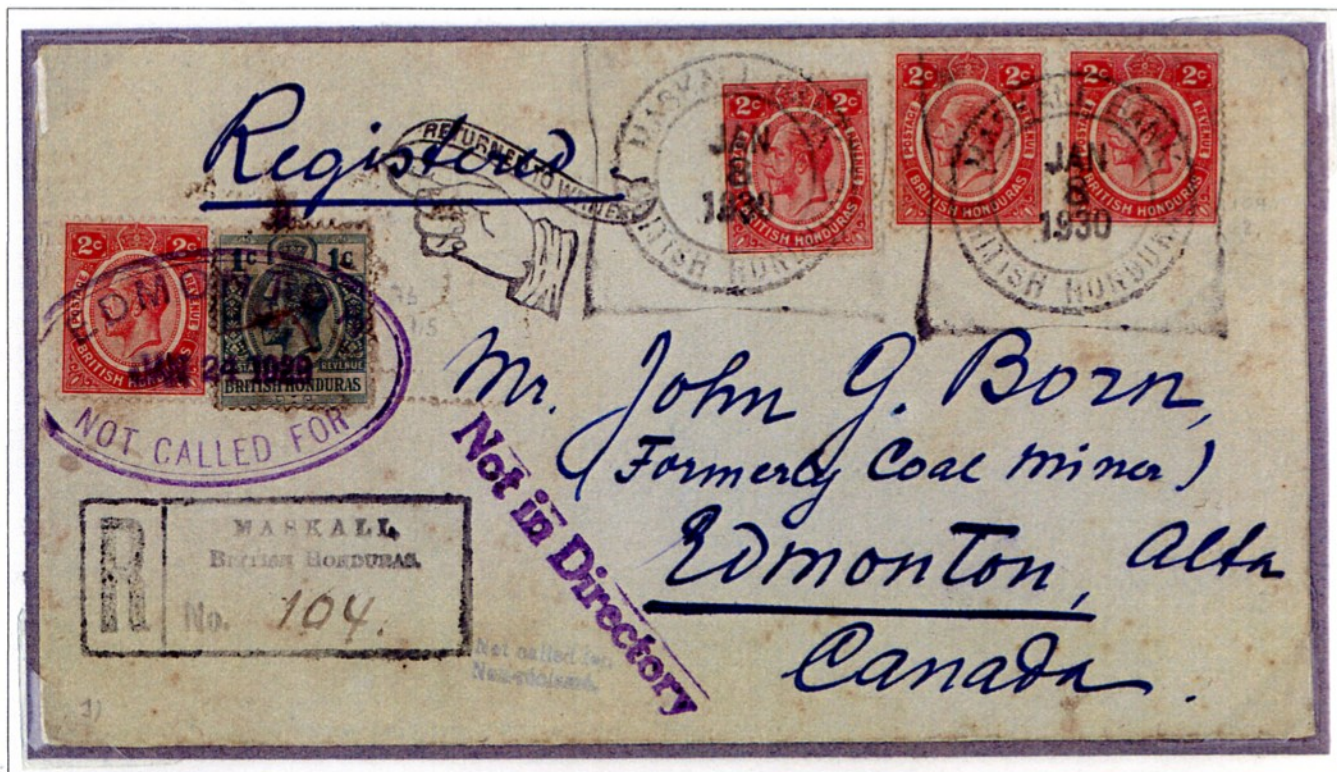 Registered
RETURNED TO WRITER
2c 2c
POSTAGE REVENUE
BRITISH HONDURAS
2c 2c
POSTAGE REVENUE
BRITISH HONDURAS
2c 2c
POSTAGE REVENUE
BRITISH HONDURAS
MASKALL
JAN
8
1930
BRITISH HONDURAS
MASKALL
JAN
8
1930
BRITISH HONDURAS
2c 2c
POSTAGE REVENUE
BRITISH HONDURAS
1c 1c
POSTAGE REVENUE
BRITISH HONDURAS
EDMONTON
JAN 24 1929
NOT CALLED FOR
Mr. John G. Born,
(Formerly Coal Miner)
Edmonton, Alta
Canada.
Not in Directory
R
MASKALL,
BRITISH HONDURAS.
No. 104.
Not called for.
Non-réclamé.